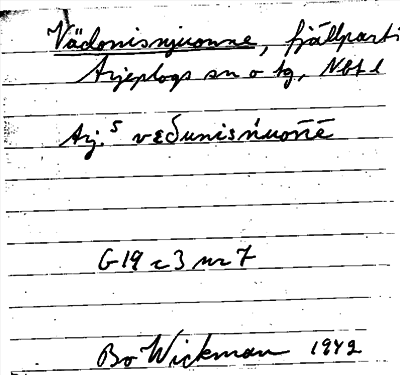 Vädonisnjuonne, fjällparti
Arjeplogs sn o tg, Nbt l
Arj.⁵ vεδunisńuońē
G19 c3 nr 7
Bo Wickman 1942